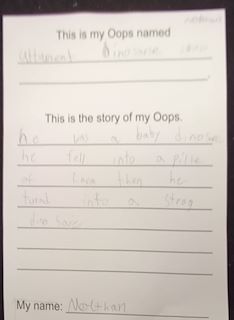 This is my Oops named
Dinosaur
This is the story of my Oops.
he was a baby dinosaur
he fell into a pille
of Lava then he
turnd into a strog
dino Saur
My name: Nolthan